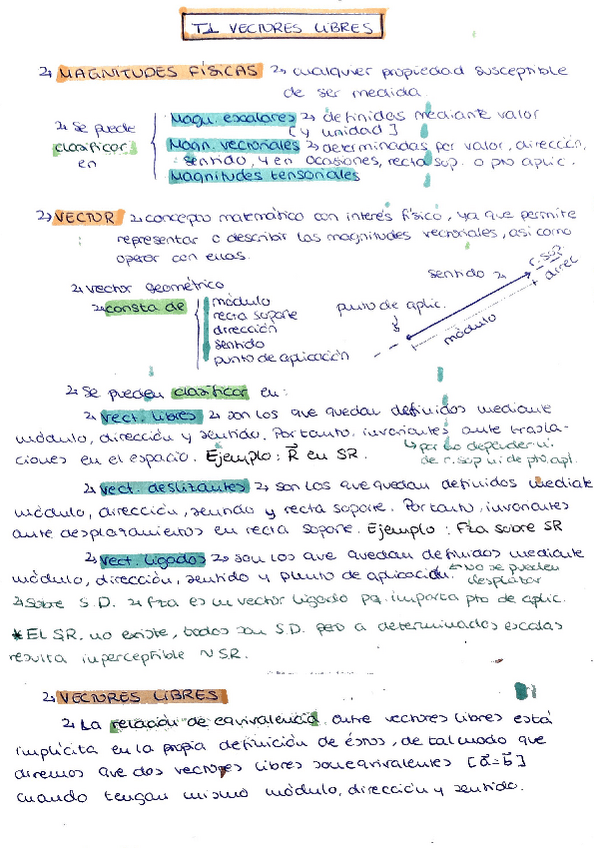 T1 VECTORES LIBRES
→ MAGNITUDES FÍSICAS → cualquier propiedad susceptible
de ser medida.
→ Se puede clasificar en
Magn. escalares → definidas mediante valor
[y unidad]
Magn. vectoriales → determinadas por valor, dirección,
sentido, y en ocasiones, recta sop. o pto aplic.
Magnitudes tensoriales
→ VECTOR → concepto matemático con interés físico, ya que permite
representar o describir las magnitudes vectoriales, así como
operar con ellas.
→ vector geométrico
→ consta de
módulo
recta soporte
dirección
sentido
punto de aplicación
sentido
r. sop.
direc
punto de aplic.
módulo
→ Se pueden clasificar en:
→ Vect. libres → son los que quedan definidos mediante
módulo, dirección y sentido. Por tanto, invariantes ante trasla-
ciones en el espacio. Ejemplo: R⃗ en SR.
↳ por no depender ni
de r. sop ni de pto. apl.
→ Vect. deslizantes → son los que quedan definidos mediate
módulo, dirección, sentido y recta soporte. Por tanto, invariantes
ante desplazamientos en recta soporte. Ejemplo: Fza sobre SR
→ Vect. ligados → son los que quedan definidos mediante
módulo, dirección, sentido y punto de aplicación. ← No se pueden
desplazar
→ Sobre S.D. → fza es un vector ligado pq. importa pto de aplic.
* El SR. no existe, todos son S.D. pero a determinadas escalas
resulta imperceptible ∼ SR.
→ VECTORES LIBRES
→ La relación de equivalencia entre vectores libres está
implícita en la propia definición de éstos, de tal modo que
diremos que dos vectores libres son equivalentes [a⃗=b⃗]
cuando tengan mismo módulo, dirección y sentido.